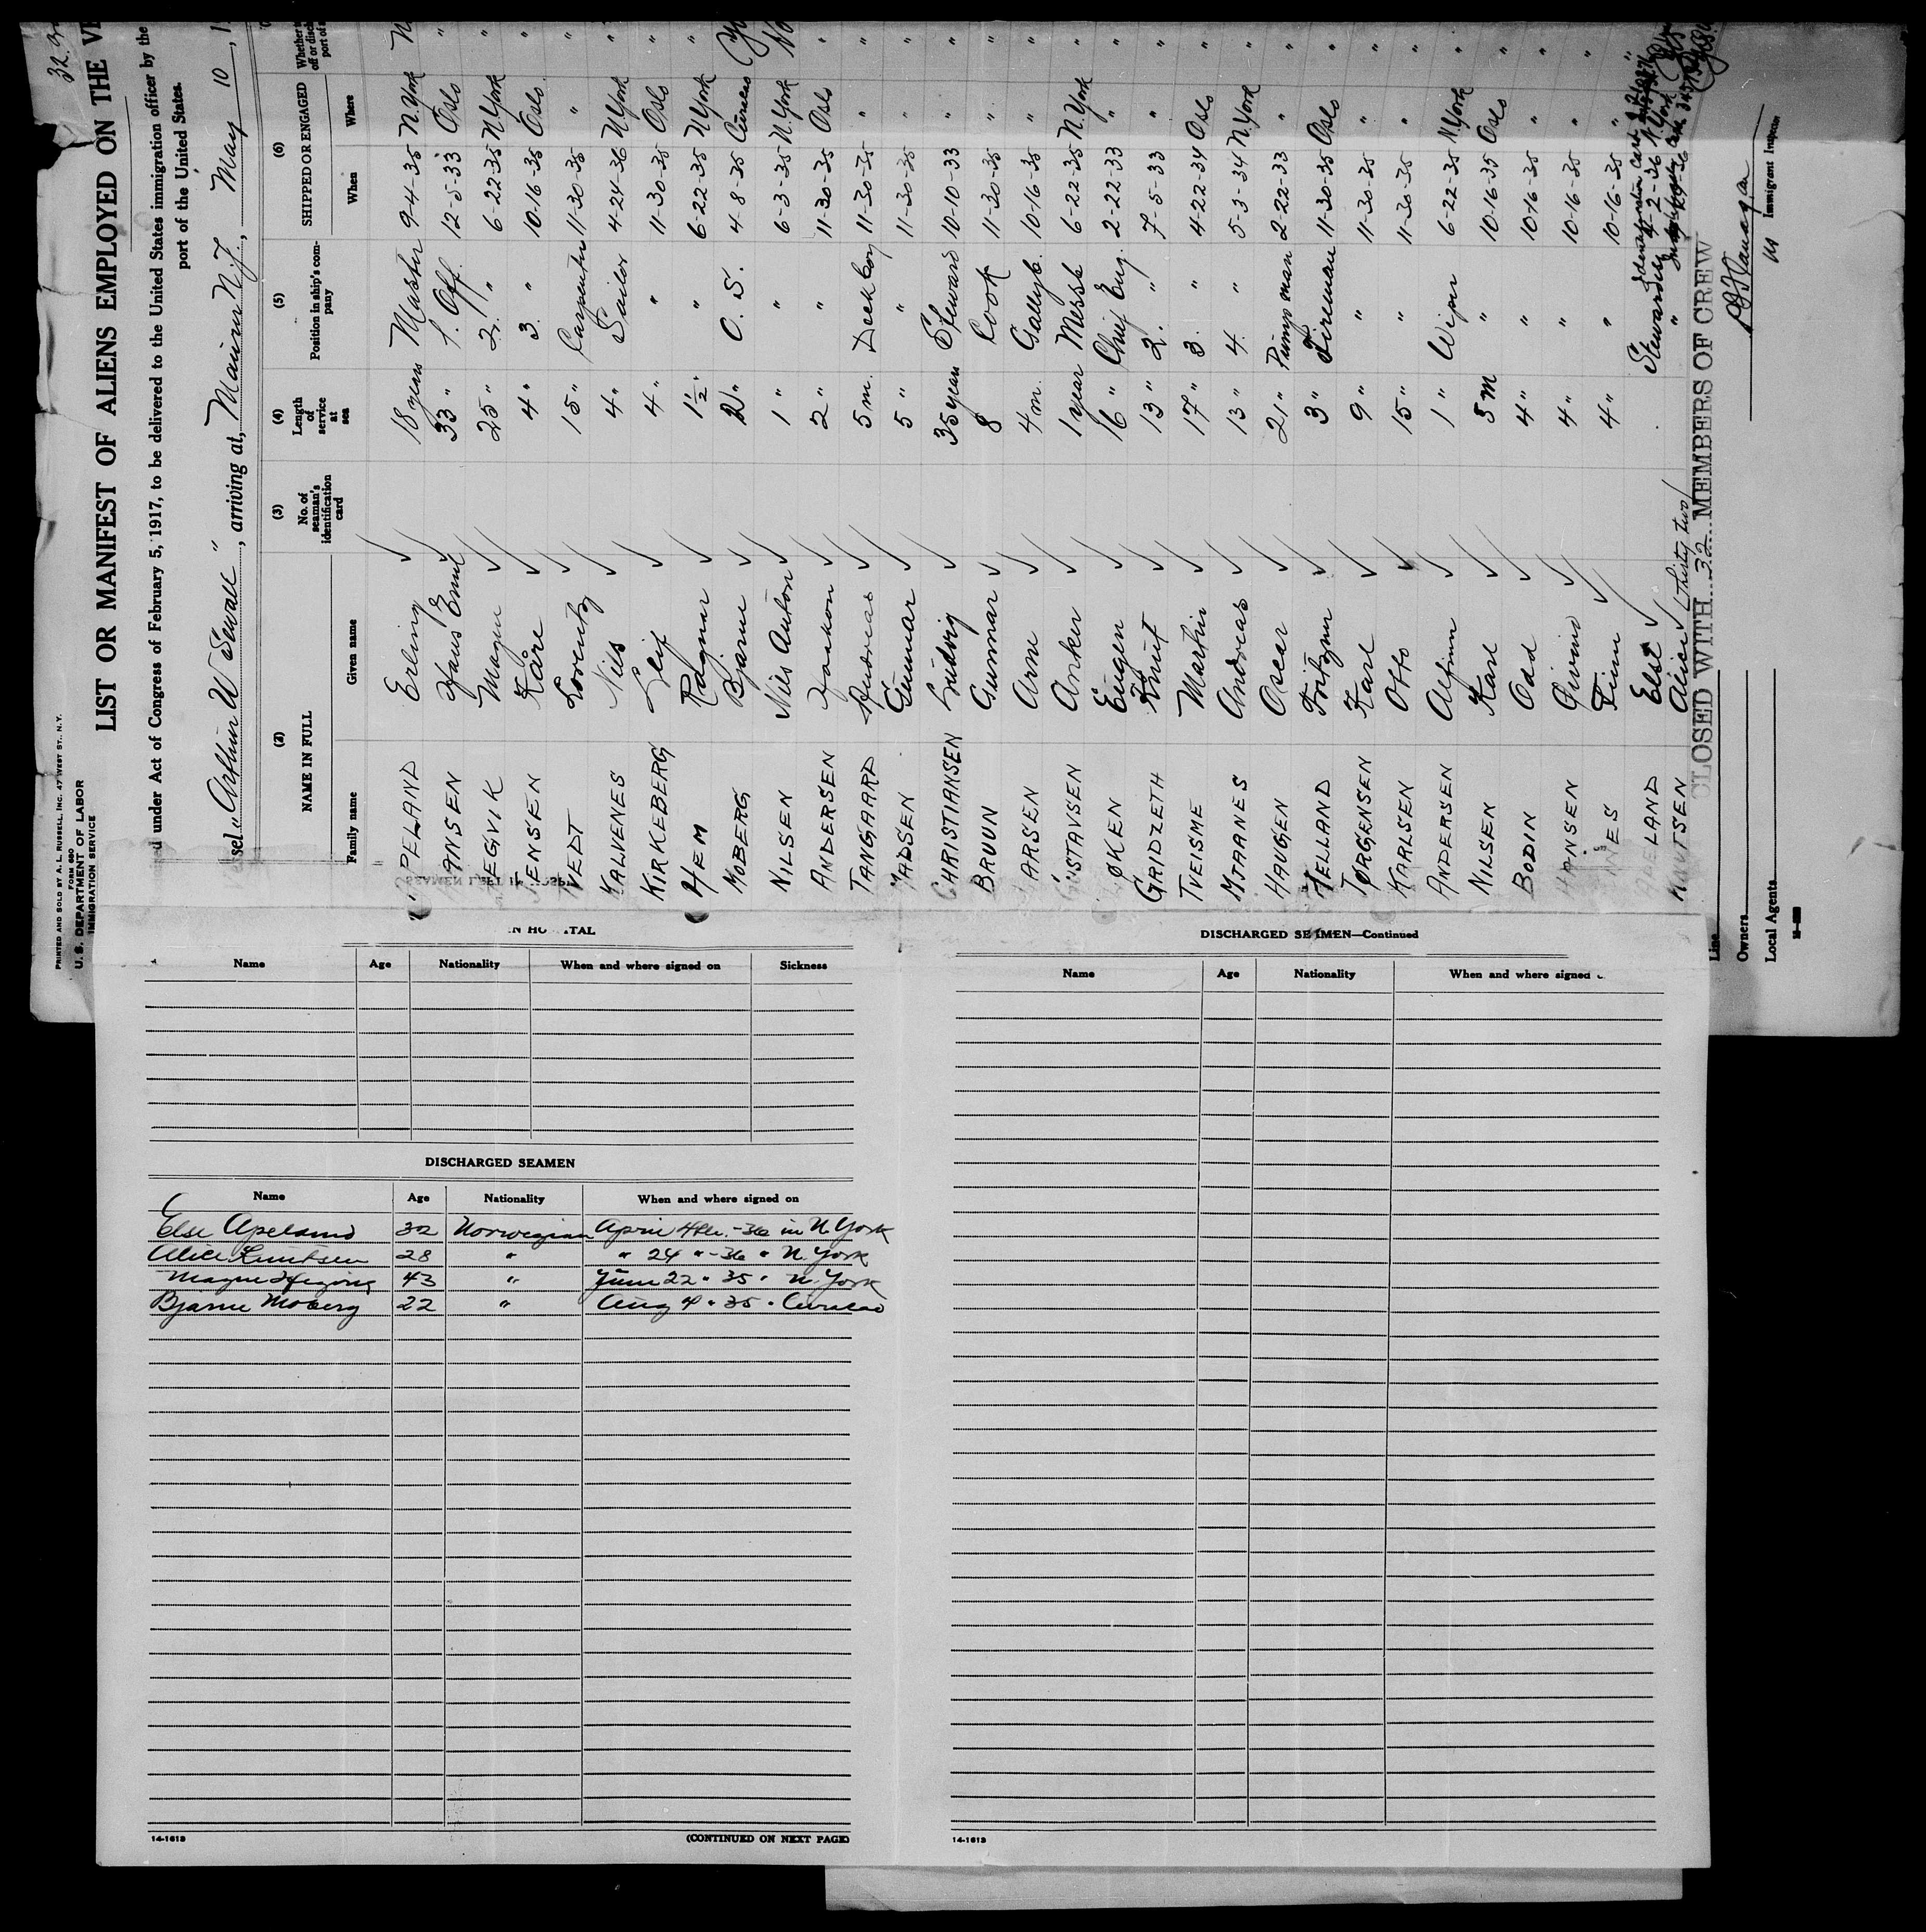 32
PRINTED AND SOLD BY A. L. RUSSELL, INC. 47 WEST ST., N. Y.
FORM 680
U. S. DEPARTMENT OF LABOR
IMMIGRATION SERVICE
LIST OR MANIFEST OF ALIENS EMPLOYED ON THE VE
d under Act of Congress of February 5, 1917, to be delivered to the United States immigration officer by the
port of the United States.
sel „Arthur W Sewall", arriving at, N.J., May 10, 1
(2) NAME IN FULL (3) No. of seaman's identification card (4) Length of service at sea (5) Position in ship's company (6) SHIPPED OR ENGAGED Whether
Family name Given name When Where
PELAND Erling 18 years Master 9-4-35 N.York N
ANSEN Hans Emil 33 " 1. Off. 12-5-33 Oslo "
EGVIK Magne 25 " 2. " 6-22-35 N.York "
JENSEN Kåre 4 " 3. " 10-16-35 Oslo "
TVEDT Lorentz 15 " Carpenter 11-30-35 " "
KALVENES Nils 4 " Sailor 4-24-36 N.York "
KIRKEBERG Leif 4 " " 11-30-35 Oslo "
HEM Ragnar 1½ " " 6-22-35 N.York "
MOBERG Bjarne 2 " O. S. 4-8-35 Curacao
NILSEN Nils Anton 1 " " 6-3-35 N.York No
ANDERSEN Haakon 2 " " 11-30-35 Oslo "
TANGAARD Andreas 5 m. Deck boy 11-30-35 " "
MADSEN Gunnar 5 " " 11-30-35 " "
CHRISTIANSEN Ludvig 35 years Steward 10-10-33 " "
BRUUN Gunnar 8 Cook 11-30-35 " "
ARSEN Arne 4 m. Gallyb. 10-16-35 " "
USTAVSEN Anker 1 year Messb 6-22-35 N.York "
ØKEN Eugen 16 " Chief Eng. 2-22-33 " "
GRIDZETH Knut 13 " 2. " 7-5-33 " "
TVEISME Martin 17 " 3. " 4-22-34 Oslo "
MTAANES Andreas 13 " 4. " 5-3-34 N.York "
HAUGEN Oscar 21 " Pumpman 2-22-33 " "
HELLAND Fritzner 3 " Fireman 11-30-35 Oslo "
JØRGENSEN Karl 9 " " 11-30-35 " "
KARLSEN Otto 15 " " 11-30-35 " "
ANDERSEN Alfinn 1 " Wiper 6-22-35 N.York "
NILSEN Karl 5 m " 10-16-35 Oslo "
BODIN Odd 4 " " 10-16-35 " "
HANSEN Öivind 4 " " 10-16-35 " "
NES Finn 4 " " 10-16-35 " "
APELAND Else Stewardess 4-2-36 N.York
KNUTSEN Alice "
CLOSED WITH 32 MEMBERS OF CREW
(thirty two)
Immigrant Inspector
Line
Owners
Local Agents
IN HOSPITAL
Name Age Nationality When and where signed on Sickness
DISCHARGED SEAMEN
Name Age Nationality When and where signed on
Else Apeland 32 Norwegian April 4th. -36 in N. York
Alice Knutsen 28 " " 24 " -36 " N. York
Magne Hegvik 43 " June 22 " 35 " N. York
Bjarne Moberg 22 " Aug 4 " 35 " Curacao
14-1613 (CONTINUED ON NEXT PAGE)
DISCHARGED SEAMEN—Continued
Name Age Nationality When and where signed
14-1613